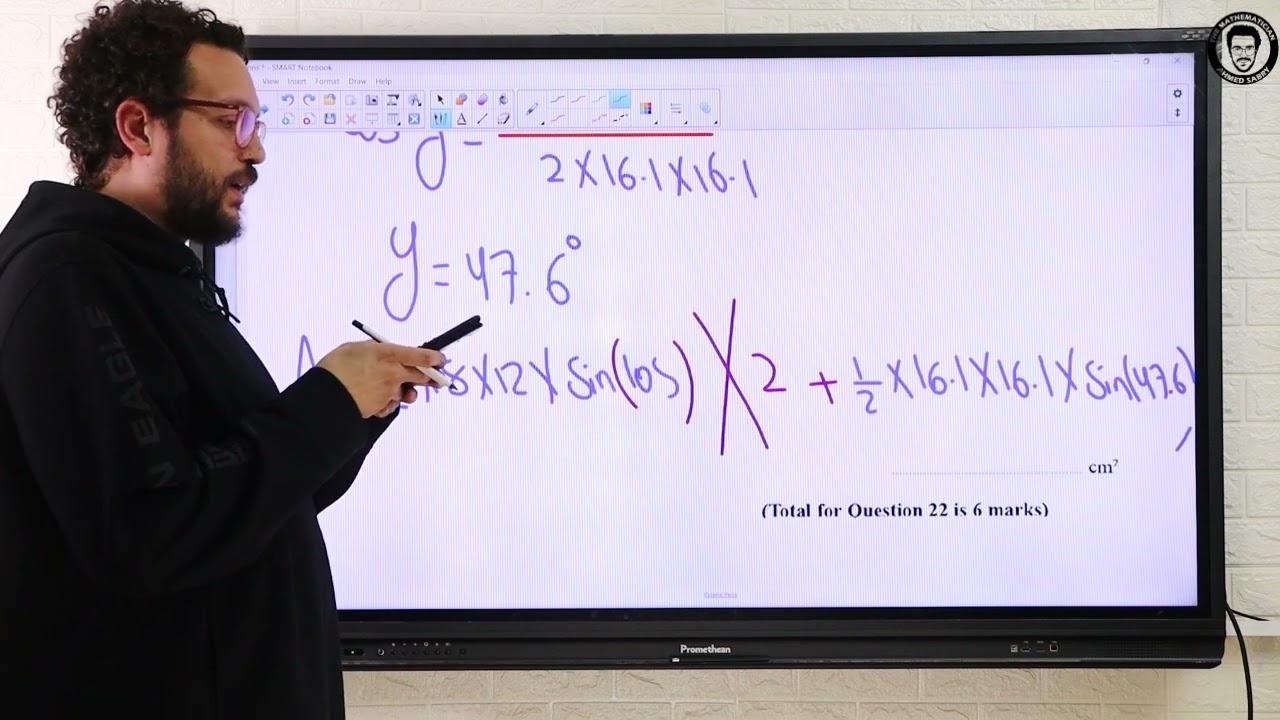 SMART Notebook
View Insert Format Draw Help
THE MATHEMATICIAN
AHMED SABRY
y =
2 X 16.1 X 16.1
y = 47.6°
8 X 12 X sin(105) X 2 + 1/2 X 16.1 X 16.1 X sin(47.6)
cm²
(Total for Question 22 is 6 marks)
Promethean
N EAGLE